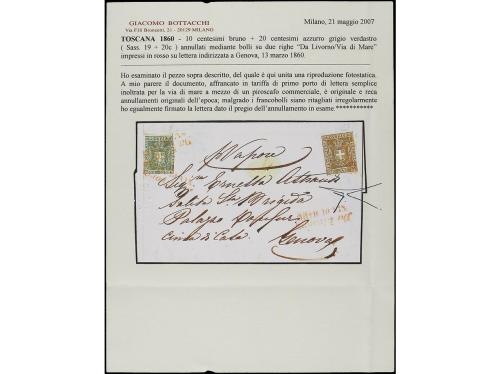 GIACOMO BOTTACCHI
Via F.lli Bronzetti, 21 - 20129 MILANO
Milano, 21 maggio 2007
TOSCANA 1860 - 10 centesimi bruno + 20 centesimi azzurro grigio verdastro
( Sass. 19 + 20c ) annullati mediante bolli su due righe “Da Livorno/Via di Mare”
impressi in rosso su lettera indirizzata a Genova, 13 marzo 1860.
Ho esaminato il pezzo sopra descritto, del quale è qui unita una riproduzione fotostatica.
A mio parere il documento, affrancato in tariffa di primo porto di lettera semplice
inoltrata per la via di mare a mezzo di un piroscafo commerciale, è originale e reca
annullamenti originali dell'epoca; malgrado i francobolli siano ritagliati irregolarmente
ho egualmente firmato la lettera dato il pregio dell'annullamento in esame.***********
Vapore
Ernesta
Salita Sta Brigida
Palazzo
Genova